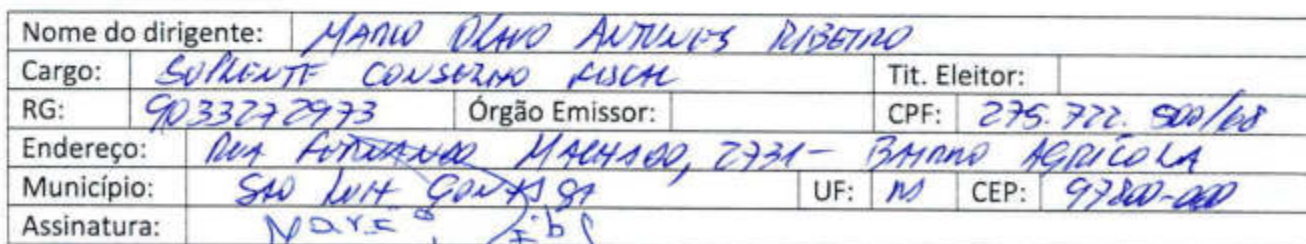 Nome do dirigente: MARIO OLAVO ANTUNES RIBEIRO
Cargo: SUPLENTE CONSELHO FISCAL Tit. Eleitor:
RG: 9033272973 Órgão Emissor: CPF: 275.722.500/68
Endereço: RUA FERNANDO MACHADO, 2731 - BAIRRO AGRICOLA
Município: SAO LUIZ GONZAGA UF: RS CEP: 97800-000
Assinatura: